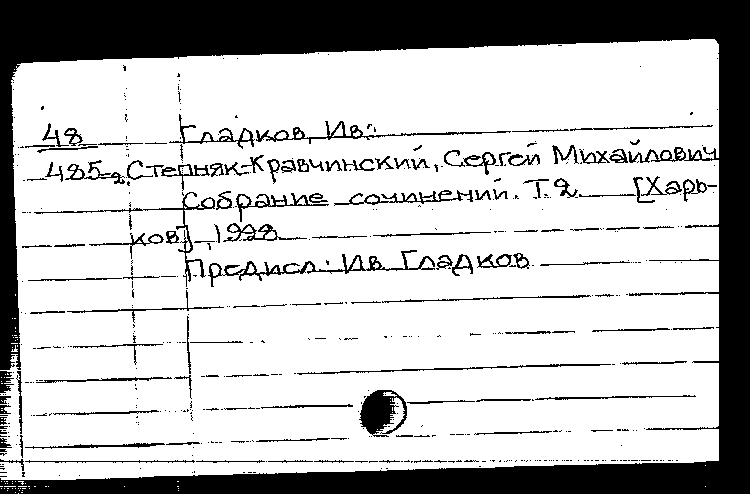 48 Гладков, Ив.
485-2 Степняк-Кравчинский, Сергей Михайлович
Собрание сочинений. Т.2. [Харь-
ков], 1928
Предисл.: Ив. Гладков